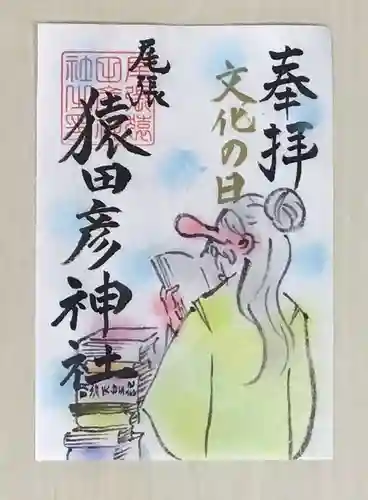 奉拝
文化の日
尾張
猿田彦神社